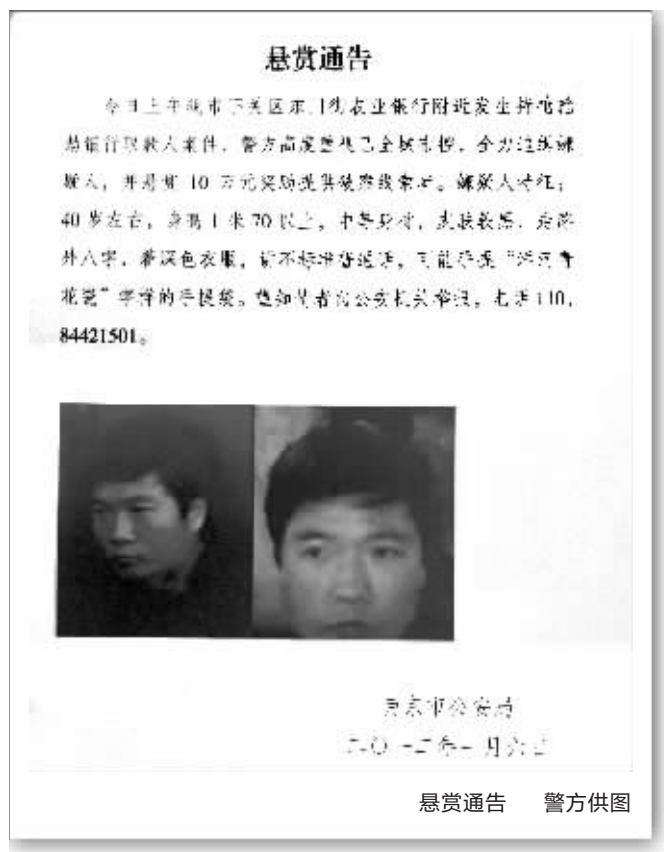 悬赏通告
今日上午我市下关区东门街农业银行附近发生持枪抢
劫银行取款人案件，警方高度重视已全城布控，全力追缉嫌
疑人，并悬赏 10 万元奖励提供破案线索者。嫌疑人特征：
40 岁左右，身高 1 米 70 以上，中等身材，皮肤较黑，走路
外八字，着深色衣服，讲不标准普通话，可能手提“
花瓷”字样的手提袋。望知情者向公安机关举报，电话 110，
84421501。
南京市公安局
二〇一二年一月六日
悬赏通告 警方供图